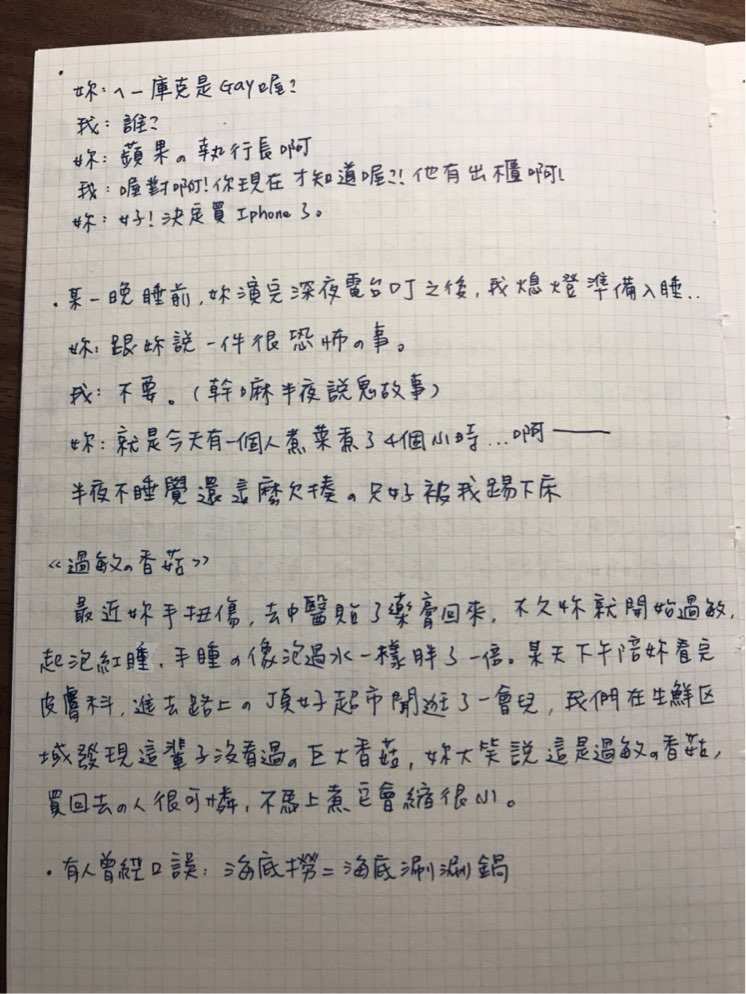 妳：ㄟ－庫克是Gay喔？
我：誰？
妳：蘋果の執行長啊
我：喔對啊！你現在才知道喔？！他有出櫃啊！
妳：好！決定買Iphone了。
·某一晚睡前，妳演完深夜電台叮之後，我熄燈準備入睡..
妳：跟妳說一件很恐怖の事。
我：不要。（幹嘛半夜說鬼故事）
妳：就是今天有一個人煮菜煮了4個小時...啊——
半夜不睡覺還這麼欠揍の只好被我踢下床
《過敏の香菇》
最近妳手扭傷，去中醫貼了藥膏回來，不久妳就開始過敏，
起泡紅腫，手腫の像泡過水一樣胖了一倍。某天下午陪妳看完
皮膚科，進去路上の頂好超市閒逛了一會兒，我們在生鮮区
域發現這輩子沒看過の巨大香菇，妳大笑說這是過敏の香菇，
買回去の人很可憐，不馬上煮它會縮很小。
·有人曾經口誤：海底撈＝海底涮涮鍋